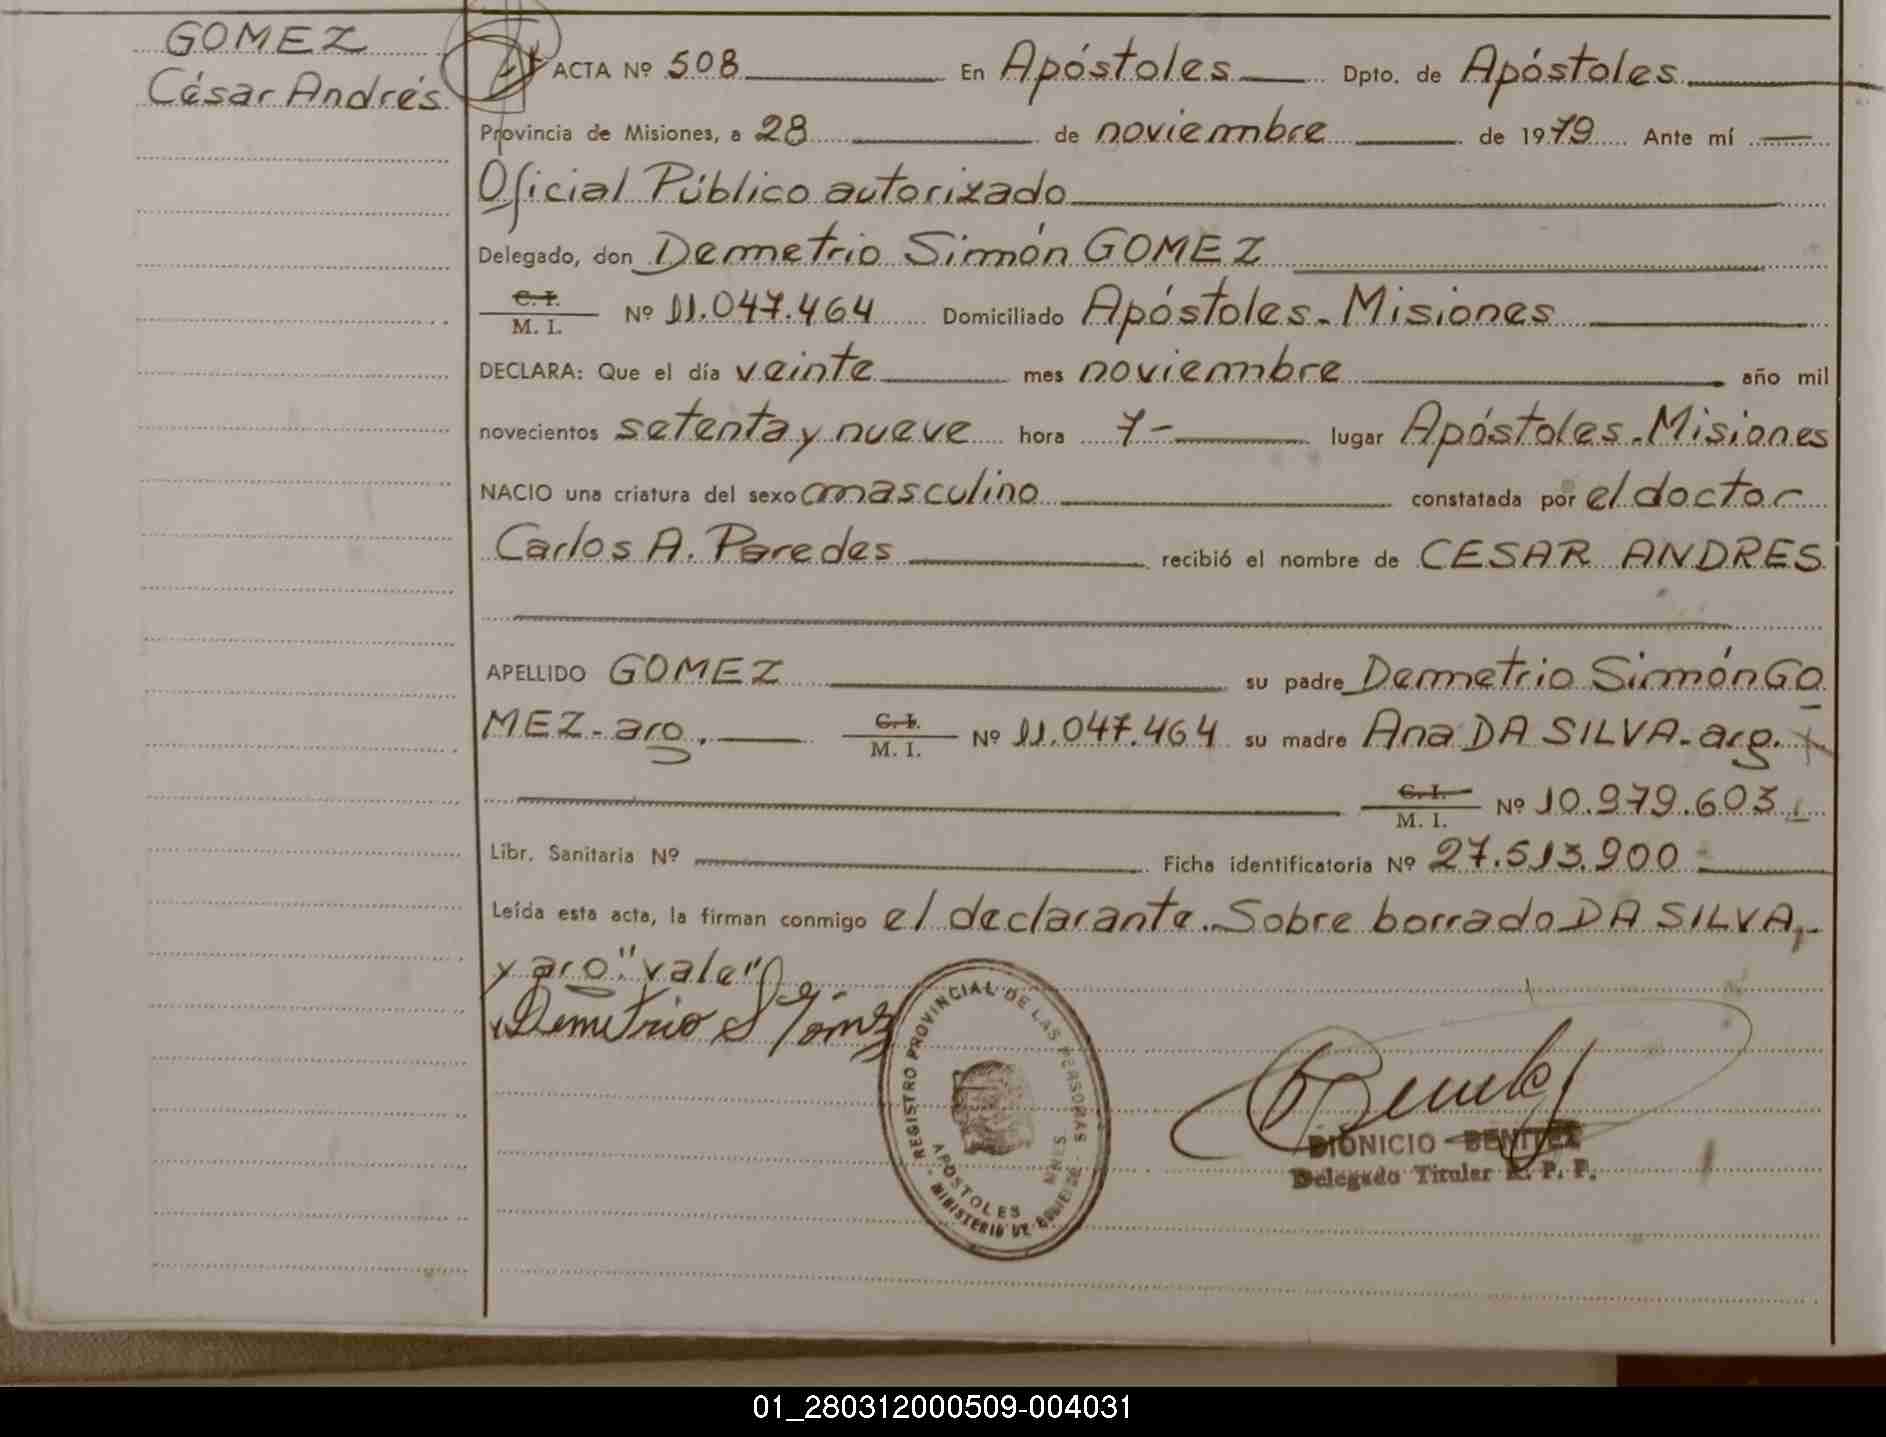 GOMEZ
César Andrés
ACTA Nº 508 En Apóstoles Dpto. de Apóstoles
Provincia de Misiones, a 28 de noviembre de 1979 Ante mí
Oficial Público autorizado
Delegado, don Demetrio Simón GOMEZ
C. I.
M. I. Nº 11.047.464 Domiciliado Apóstoles - Misiones
DECLARA: Que el día veinte mes noviembre año mil
novecientos setenta y nueve hora 7- lugar Apóstoles - Misiones
NACIO una criatura del sexo masculino constatada por el doctor
Carlos A. Paredes recibió el nombre de CESAR ANDRES
APELLIDO GOMEZ su padre Demetrio Simón GO
MEZ - aro. C. I. M. I. Nº 11.047.464 su madre Ana DA SILVA - arg.
C. I. M. I. Nº 10.979.603
Libr. Sanitaria Nº Ficha identificatoria Nº 27.513.900
Leída esta acta, la firman conmigo el declarante. Sobre borrado DA SILVA,
y aro "vale"
Demetrio S Gómez
REGISTRO PROVINCIAL DE LAS PERSONAS
APOSTOLES MNES.
MINISTERIO DE GOBIERNO
DIONICIO BENITEZ
Delegado Titular R. P. P.
01_280312000509-004031